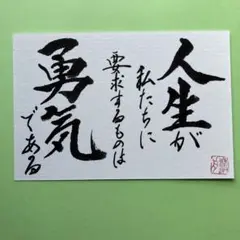 人生が
私たちに
要求するものは
勇気
である